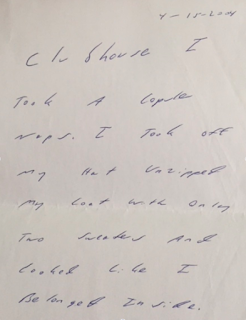 Clubhouse I
Took A Couple
Naps. I Took off
My Hat Unzipped
My Coat With Only
Two Sweaters And
Looked Like I
Belonged Inside.